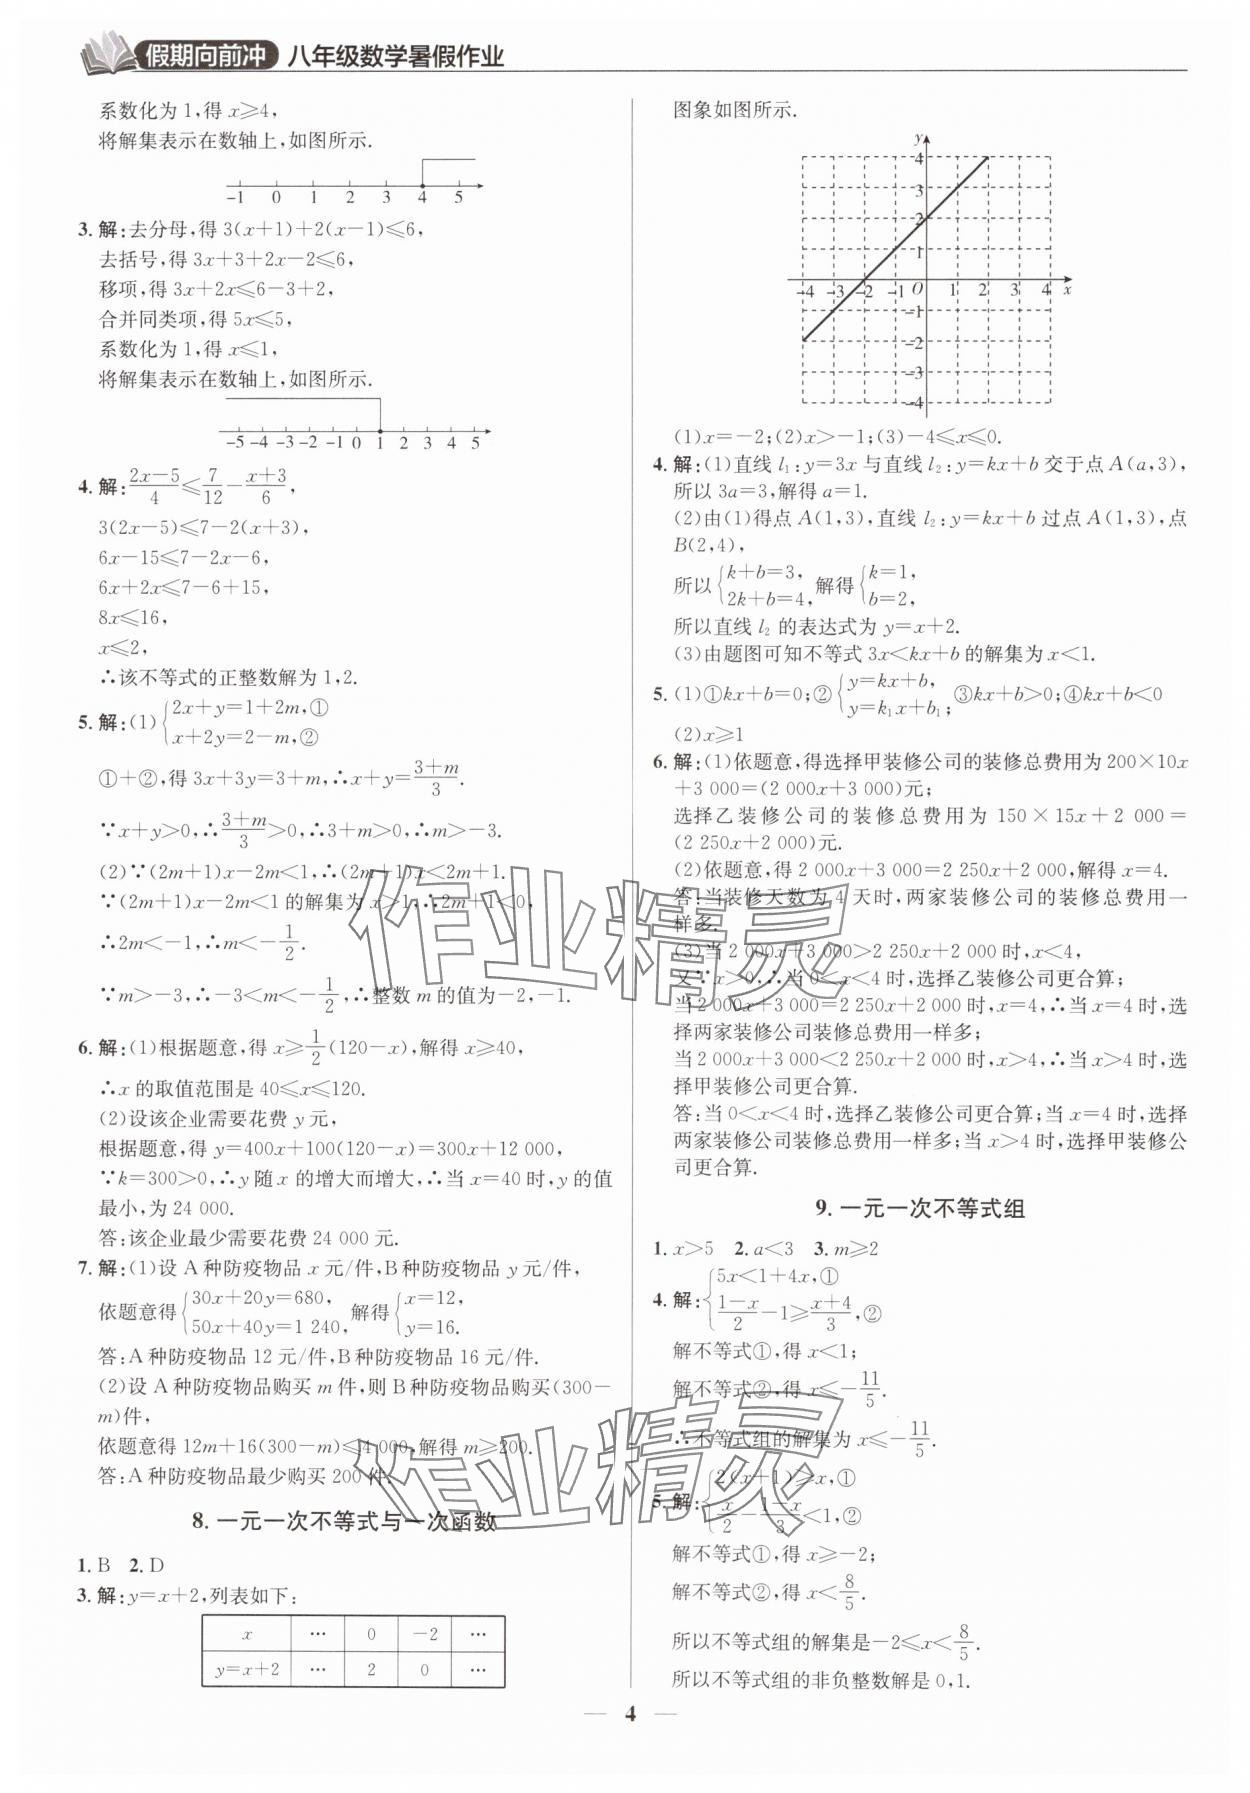 假期向前冲 八年级数学暑假作业
系数化为1,得x≥4,
将解集表示在数轴上,如图所示.
-1 0 1 2 3 4 5
3.解:去分母,得3(x+1)+2(x-1)≤6,
去括号,得3x+3+2x-2≤6,
移项,得3x+2x≤6-3+2,
合并同类项,得5x≤5,
系数化为1,得x≤1,
将解集表示在数轴上,如图所示.
-5 -4 -3 -2 -1 0 1 2 3 4 5
4.解:(2x-5)/4≤7/12-(x+3)/6,
3(2x-5)≤7-2(x+3),
6x-15≤7-2x-6,
6x+2x≤7-6+15,
8x≤16,
x≤2,
∴该不等式的正整数解为1,2.
5.解:(1){2x+y=1+2m,①
x+2y=2-m,②
①+②,得3x+3y=3+m,∴x+y=(3+m)/3.
∵x+y>0,∴(3+m)/3>0,∴3+m>0,∴m>-3.
(2)∵(2m+1)x-2m<1,∴(2m+1)x<2m+1.
∵(2m+1)x-2m<1的解集为x>1,∴2m+1<0,
∴2m<-1,∴m<-1/2.
∵m>-3,∴-3<m<-1/2,∴整数m的值为-2,-1.
6.解:(1)根据题意,得x≥1/2(120-x),解得x≥40,
∴x的取值范围是40≤x≤120.
(2)设该企业需要花费y元,
根据题意,得y=400x+100(120-x)=300x+12 000,
∵k=300>0,∴y随x的增大而增大,∴当x=40时,y的值
最小,为24 000.
答:该企业最少需要花费24 000元.
7.解:(1)设A种防疫物品x元/件,B种防疫物品y元/件,
依题意得{30x+20y=680, 50x+40y=1 240, 解得{x=12, y=16.
答:A种防疫物品12元/件,B种防疫物品16元/件.
(2)设A种防疫物品购买m件,则B种防疫物品购买(300-
m)件,
依题意得12m+16(300-m)≤4 000,解得m≥200.
答:A种防疫物品最少购买200件.
8.一元一次不等式与一次函数
1.B 2.D
3.解:y=x+2,列表如下:
x … 0 -2 …
y=x+2 … 2 0 …
图象如图所示.
y
4
3
2
1
-4 -3 -2 -1 O 1 2 3 4 x
-1
-2
-3
-4
(1)x=-2;(2)x>-1;(3)-4≤x≤0.
4.解:(1)直线l₁:y=3x与直线l₂:y=kx+b交于点A(a,3),
所以3a=3,解得a=1.
(2)由(1)得点A(1,3),直线l₂:y=kx+b过点A(1,3),点
B(2,4),
所以{k+b=3, 2k+b=4, 解得{k=1, b=2,
所以直线l₂的表达式为y=x+2.
(3)由题图可知不等式3x<kx+b的解集为x<1.
5.(1)①kx+b=0;②{y=kx+b, y=k₁x+b₁; ③kx+b>0;④kx+b<0
(2)x≥1
6.解:(1)依题意,得选择甲装修公司的装修总费用为200×10x
+3 000=(2 000x+3 000)元;
选择乙装修公司的装修总费用为150×15x+2 000=
(2 250x+2 000)元.
(2)依题意,得2 000x+3 000=2 250x+2 000,解得x=4.
答:当装修天数为4天时,两家装修公司的装修总费用一
样多.
(3)当2 000x+3 000>2 250x+2 000时,x<4,
又∵x>0,∴当0<x<4时,选择乙装修公司更合算;
当2 000x+3 000=2 250x+2 000时,x=4,∴当x=4时,选
择两家装修公司装修总费用一样多;
当2 000x+3 000<2 250x+2 000时,x>4,∴当x>4时,选
择甲装修公司更合算.
答:当0<x<4时,选择乙装修公司更合算;当x=4时,选择
两家装修公司装修总费用一样多;当x>4时,选择甲装修公
司更合算.
9.一元一次不等式组
1.x>5 2.a<3 3.m≥2
4.解:{5x<1+4x,①
(1-x)/2-1≥(x+4)/3,②
解不等式①,得x<1;
解不等式②,得x≤-11/5.
∴不等式组的解集为x≤-11/5.
5.解:{2(x+1)≥x,①
x/2-(1-x)/3<1,②
解不等式①,得x≥-2;
解不等式②,得x<8/5.
所以不等式组的解集是-2≤x<8/5.
所以不等式组的非负整数解是0,1.
4
作业精灵
作业精灵